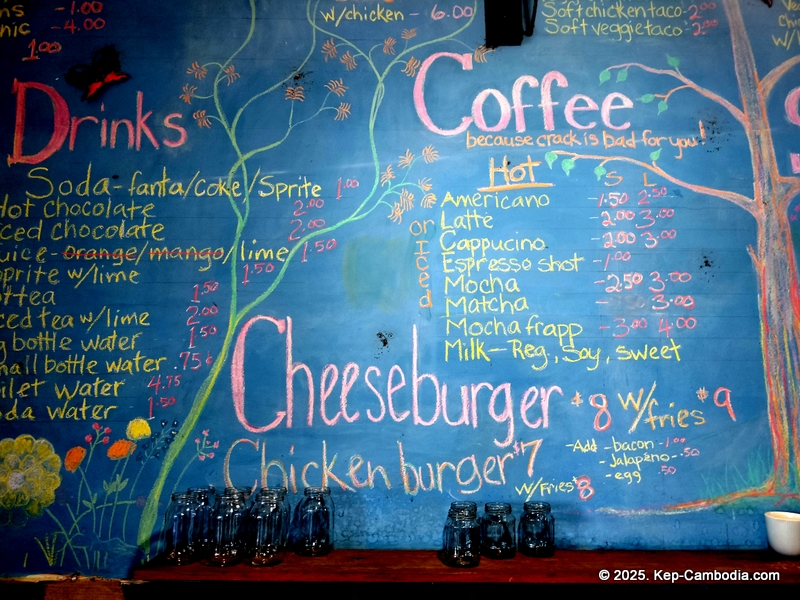 -1.00
-4.00
1.00
w/chicken - 6.00
Soft chicken taco - 2.00
Soft veggie taco - 2.00
Drinks
Soda-fanta/coke/Sprite 1.00
Hot chocolate 2.00
iced chocolate 2.00
juice-orange/mango/lime 1.50
Sprite w/lime 1.50
tea 1.50
iced tea w/lime 2.00
bottle water 1.50
small bottle water .75¢
water 4.75
soda water 1.50
Coffee
because crack is bad for you!
Hot S L
or Iced
Americano -1.50 2.50
Latte -2.00 3.00
Cappucino -2.00 3.00
Espresso shot -1.00
Mocha -2.50 3.00
Matcha - 3.00
Mocha frapp -3.00 4.00
Milk-Reg., Soy, sweet
Cheeseburger $8 w/fries $9
Chicken burger $7
w/Fries $8
-Add -bacon -1.00
-Jalapeño- .50
-egg .50
© 2025. Kep-Cambodia.com